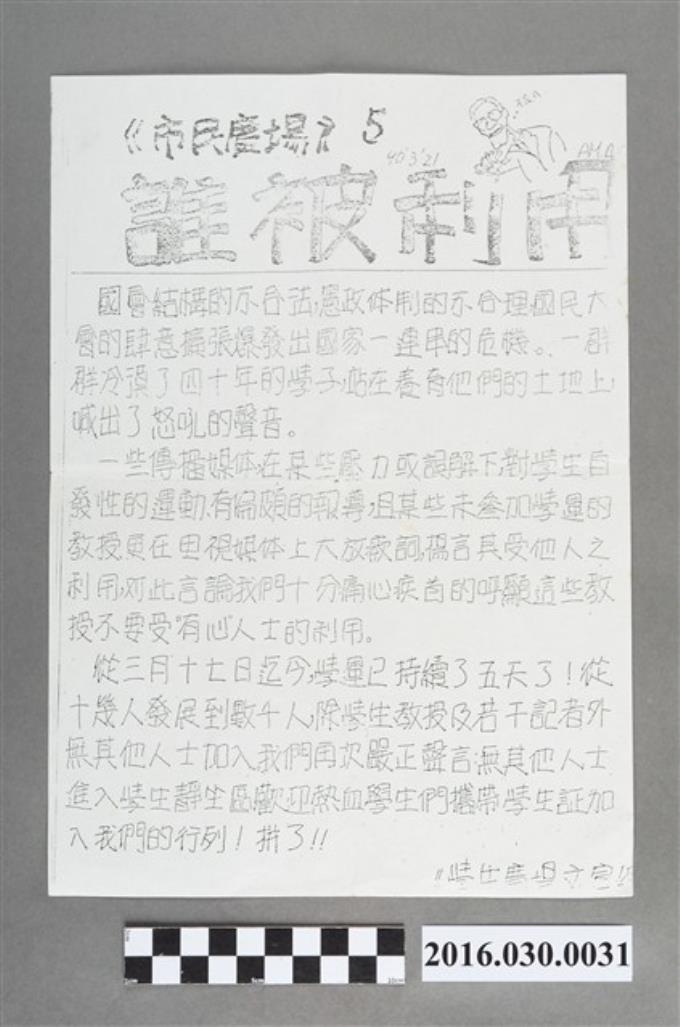 《市民廣場》 5
40'3'21
AMA
誰被利用
國會結構的不合法,憲政体制的不合理國民大
會的肆意擴張爆發出國家一連串的危機。一群
群冷漠了四十年的學子,站在養育他們的土地上,
喊出了怒吼的聲音。
一些傳播媒体,在某些壓力或誤解下,對學生自
發性的運動,有偏頗的報導,且某些未參加學運的
教授,更在电視媒体上大放厥詞,揭言其受他人之
利用,对此言論我們十分痛心疾首的呼籲這些教
授不要受"有心"人士的利用。
從三月十七日迄今,學運已持續了五天了!從
十幾人發展到數千人,除學生教授及若干記者外
無其他人士加入我們再次嚴正聲言,無其他人士
進入學生靜坐區,歡迎熱血學生們攜帶學生証加
入我們的行列!拼了!!
2016.030.0031